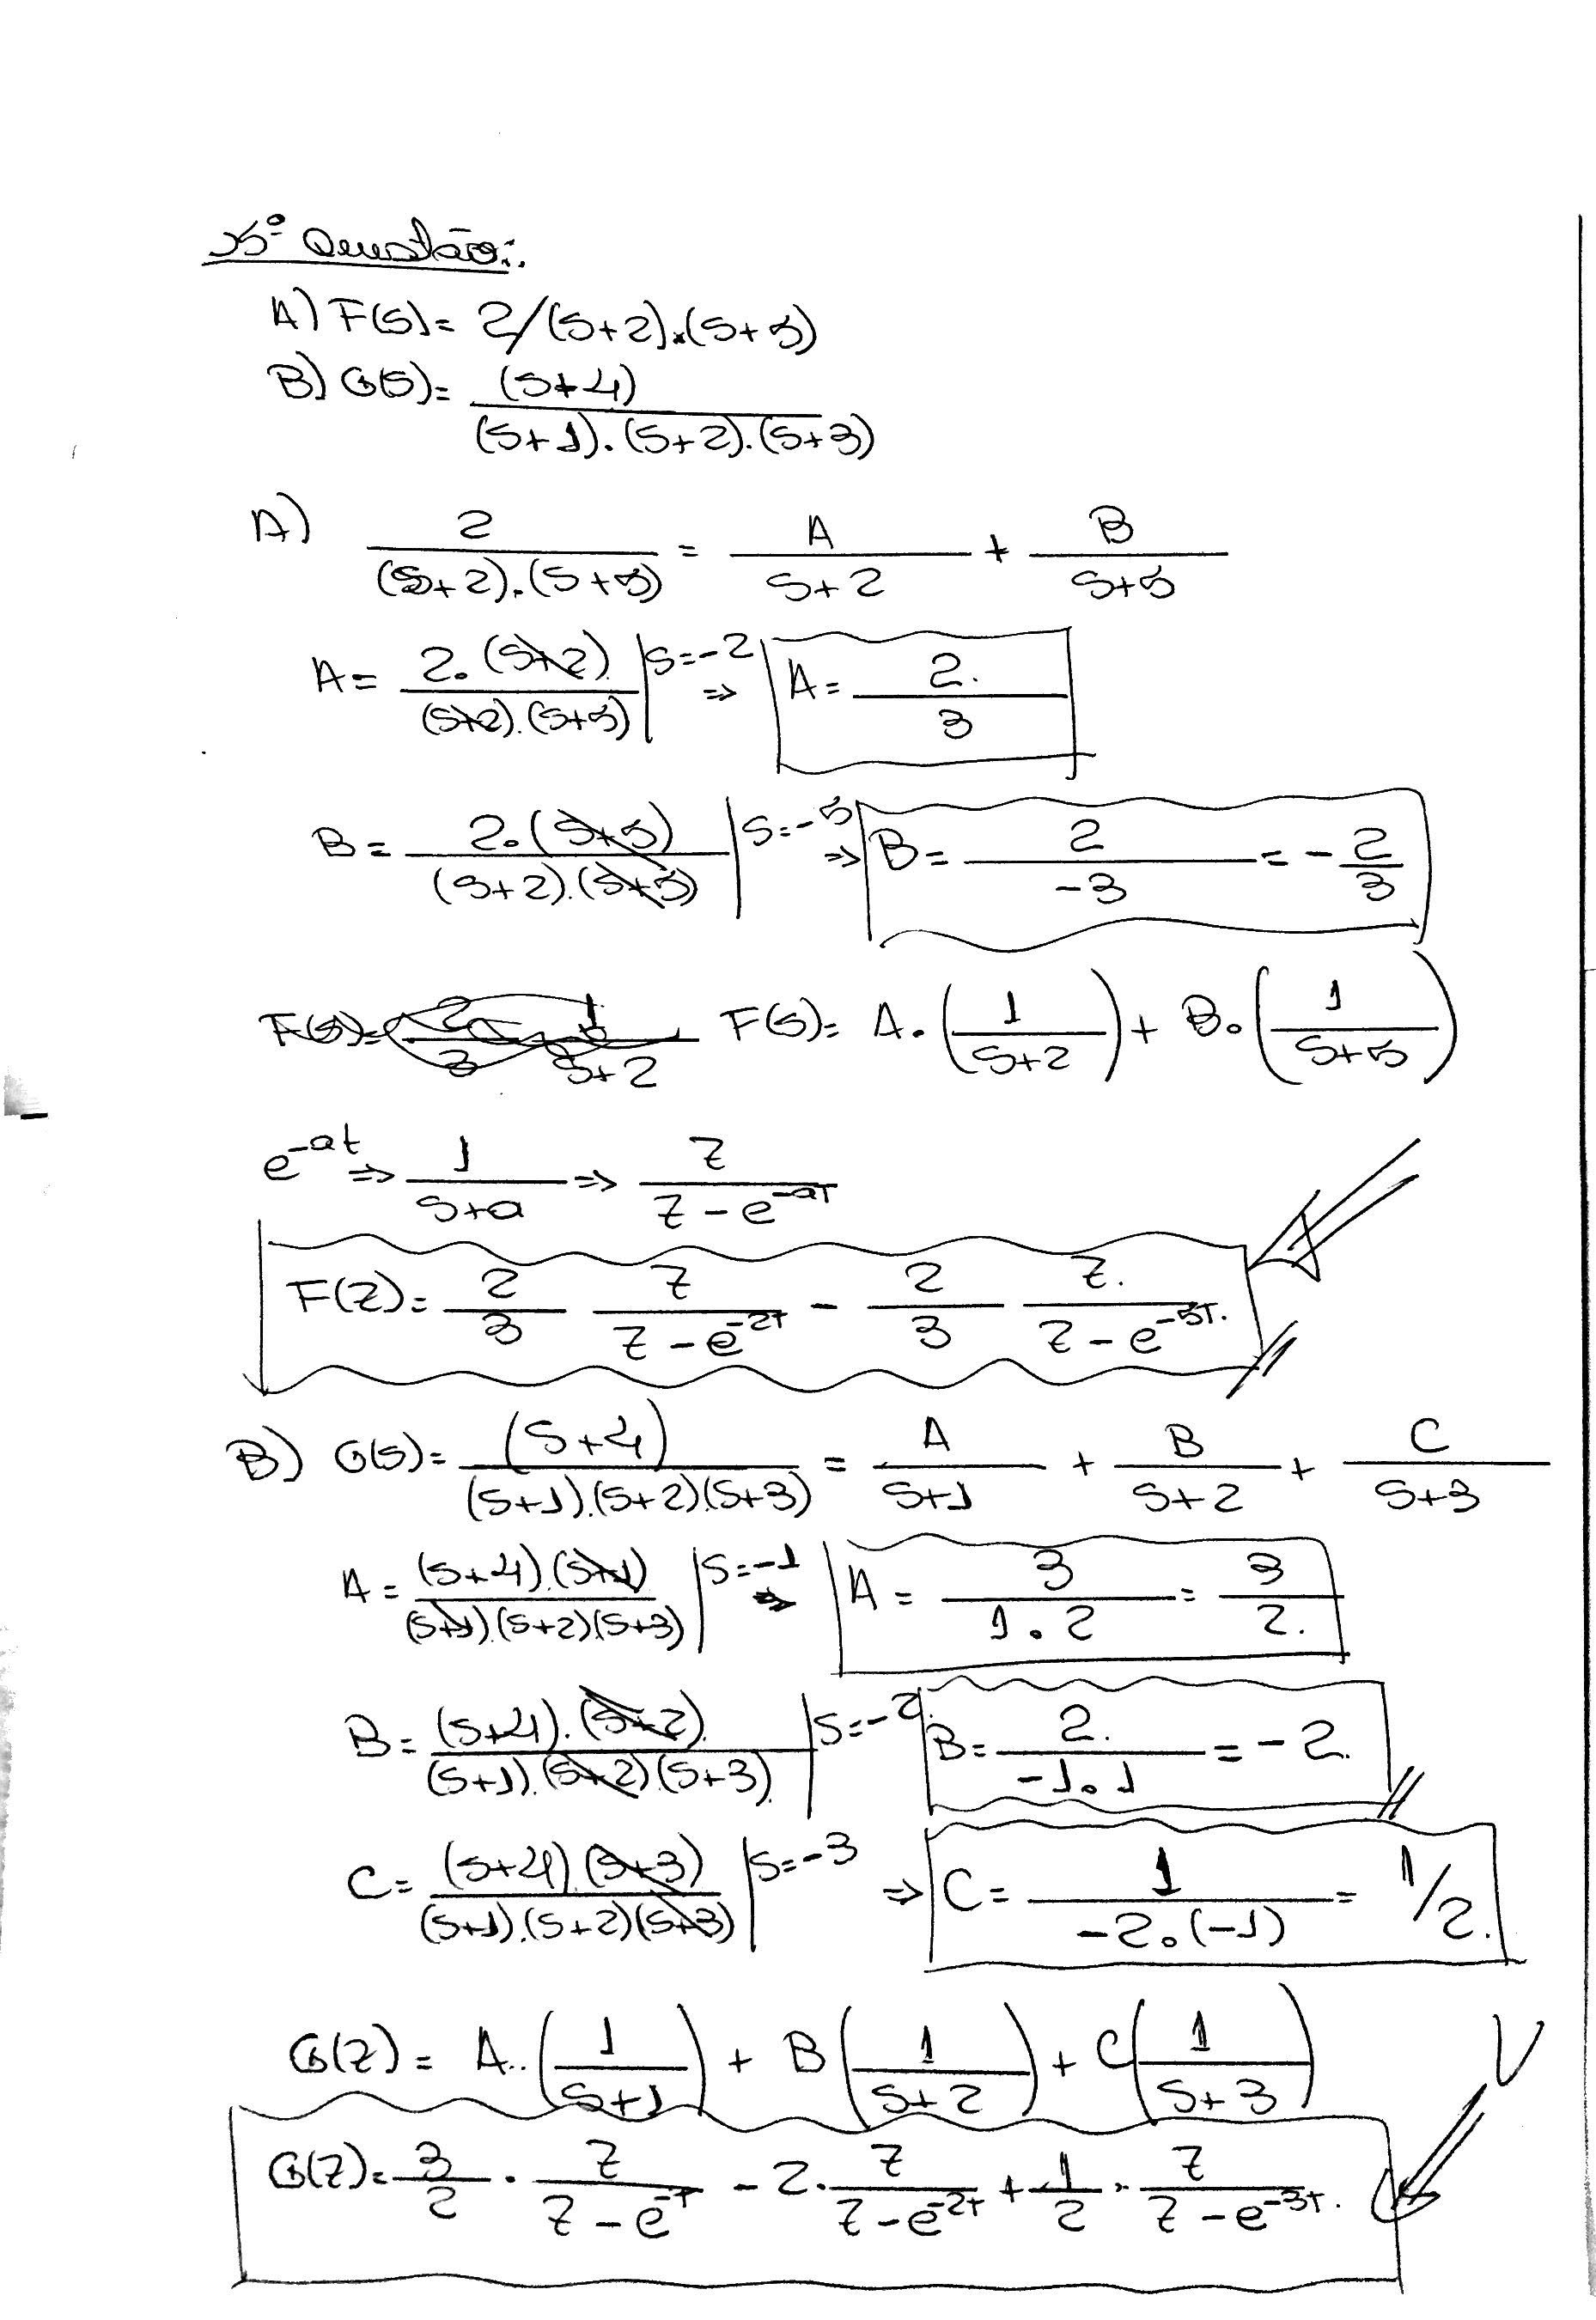 5ª Questão:
A) F(s)= 2/(s+2).(s+5)
B) G(s)= (s+4) / (s+1).(s+2).(s+3)
A) 2 / (s+2).(s+5) = A / s+2 + B / s+5
A = 2.(s+2) / (s+2).(s+5) | s=-2 ⇒ A = 2. / 3
B = 2.(s+5) / (s+2).(s+5) | s=-5 ⇒ B = 2 / -3 = - 2 / 3
F(s)= A.(1 / s+2) + B.(1 / s+5)
e^-at ⇒ 1 / s+a ⇒ z / z - e^-aT
F(z)= 2 / 3 z / z - e^-2T - 2 / 3 z. / z - e^-5T.
B) G(s)= (s+4) / (s+1).(s+2)(s+3) = A / s+1 + B / s+2 + C / s+3
A = (s+4).(s+1) / (s+1).(s+2)(s+3) | s=-1 ⇒ A = 3 / 1.2 = 3 / 2.
B = (s+4).(s+2) / (s+1).(s+2)(s+3) | s=-2 B = 2. / -1.1 = -2.
C = (s+4).(s+3) / (s+1).(s+2)(s+3) | s=-3 ⇒ C = 1 / -2.(-1) = 1/2.
G(z) = A.(1 / s+1) + B(1 / s+2) + C(1 / s+3)
G(z)= 3 / 2 . z / z - e^-T - 2. z / z - e^-2T + 1 / 2 . z / z - e^-3T.